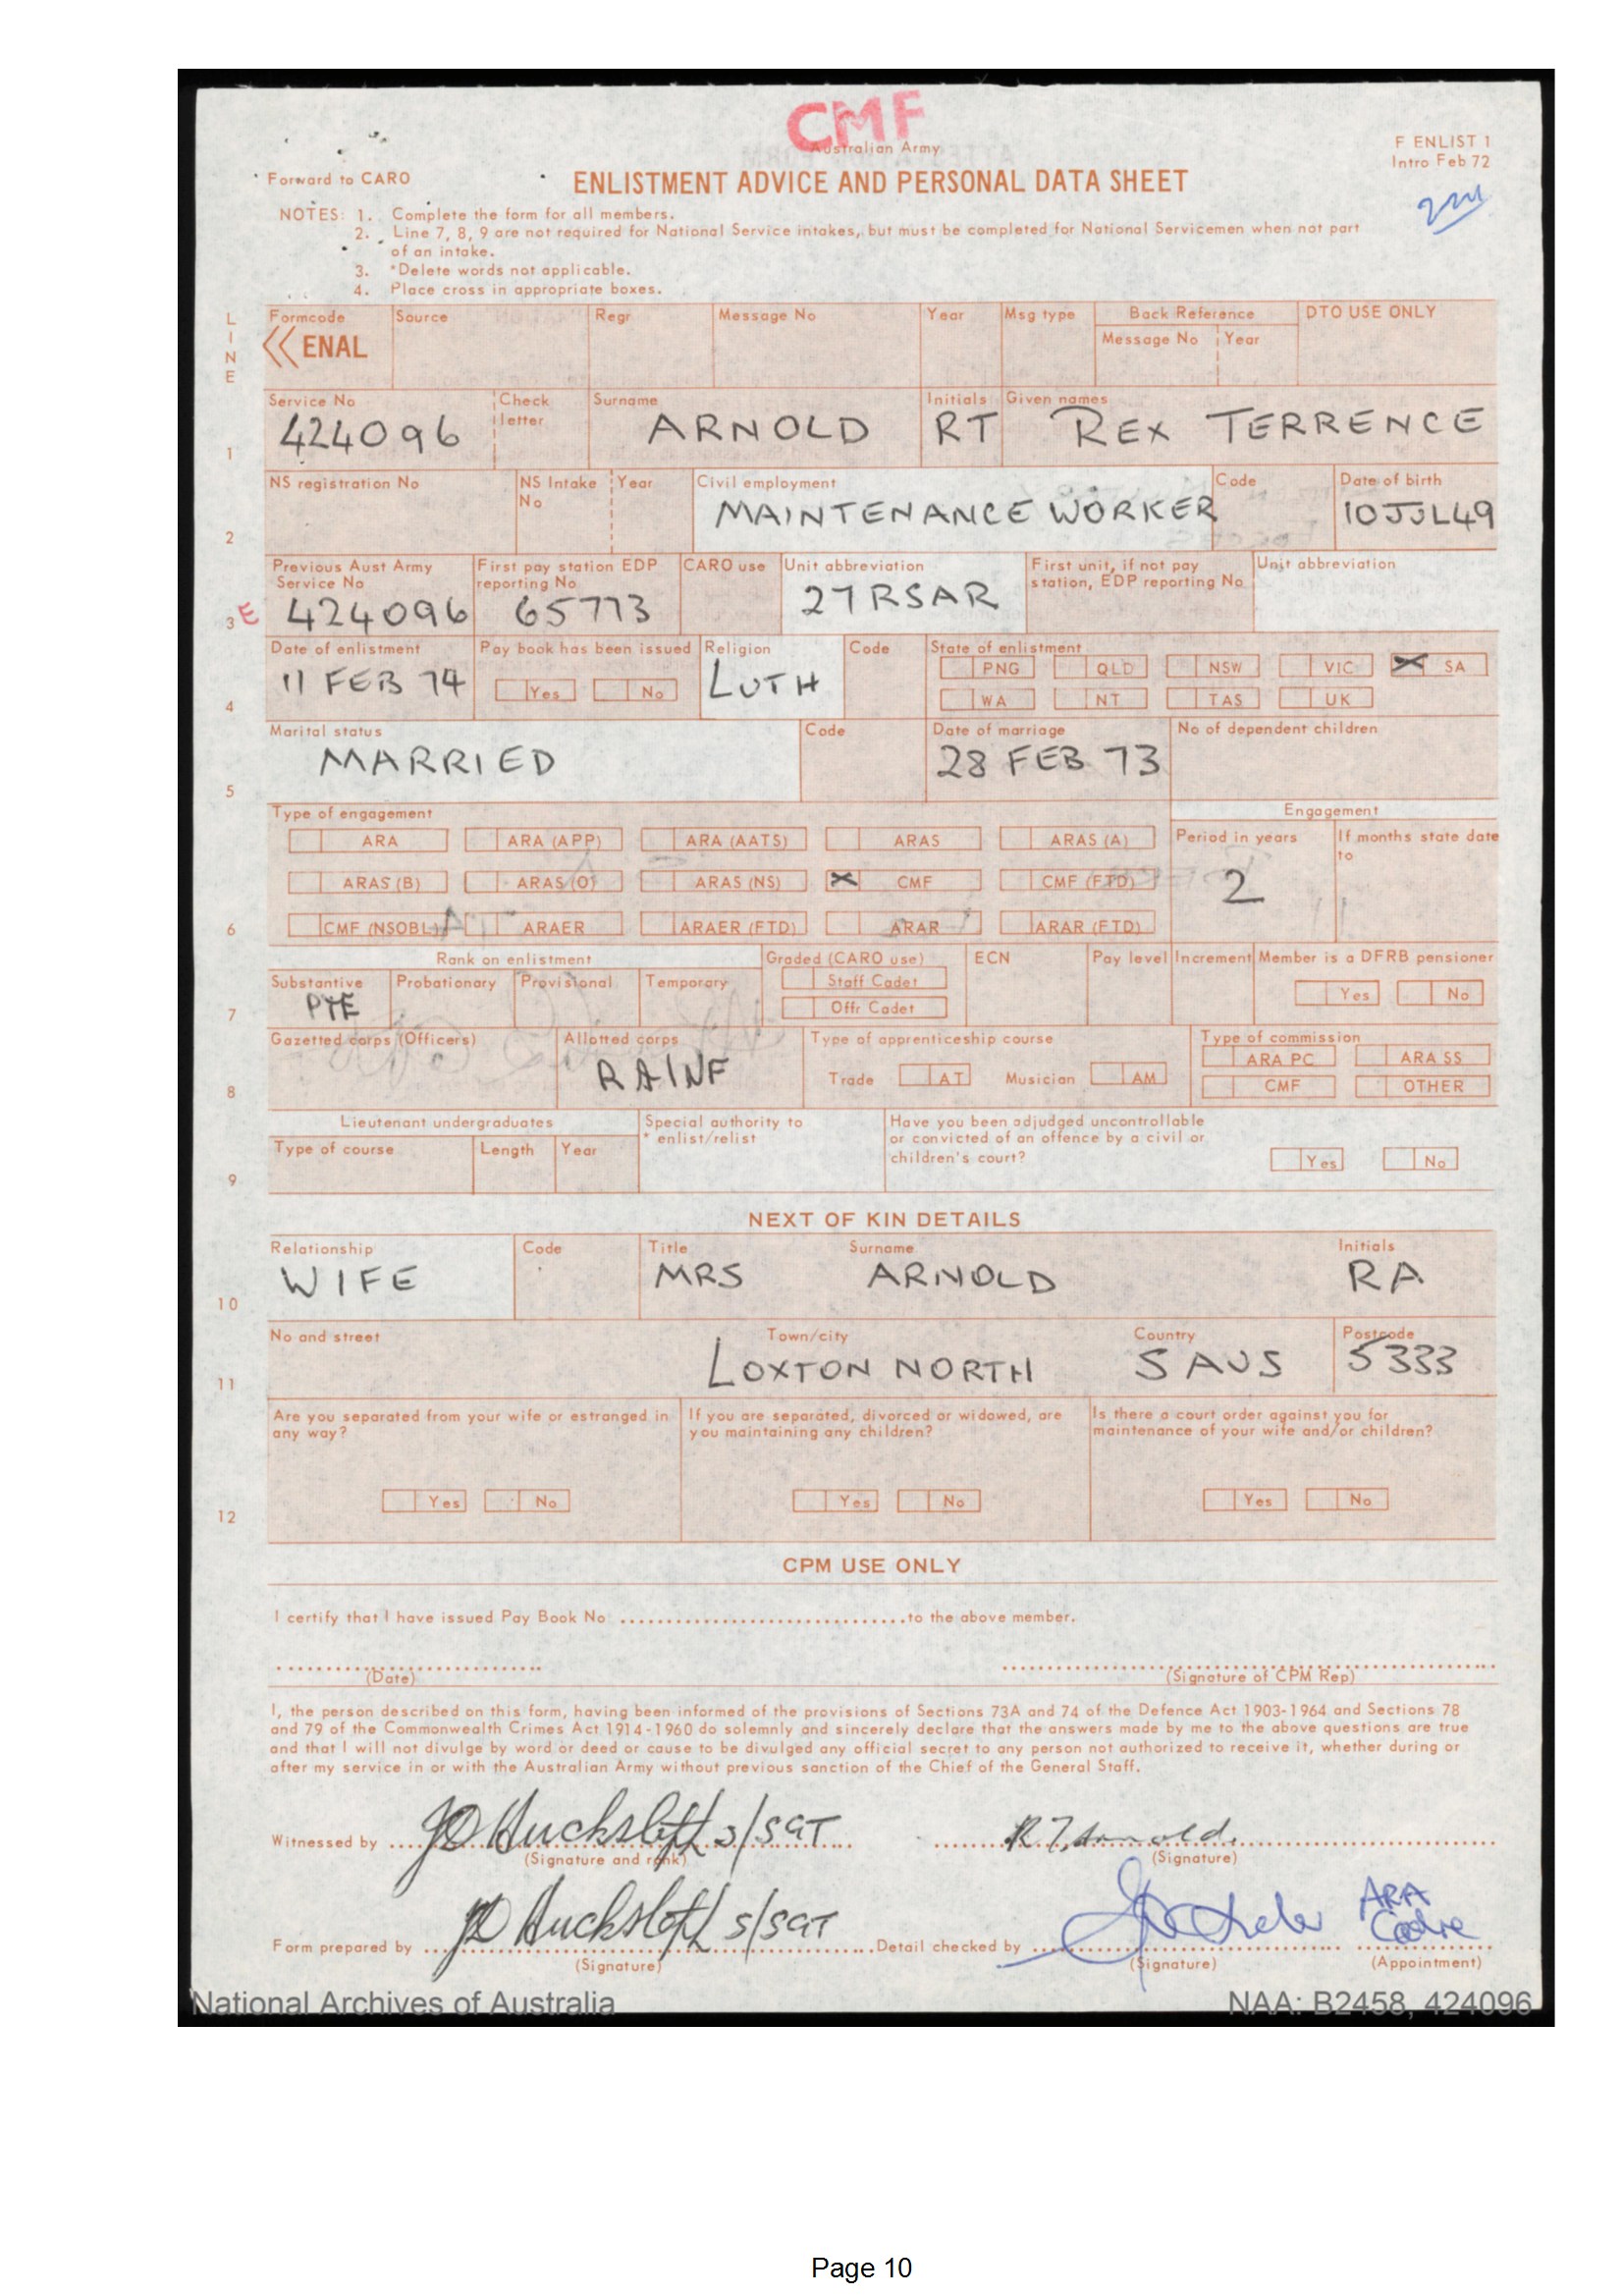 CMF
Australian Army
F ENLIST 1
Intro Feb 72
Forward to CARO
ENLISTMENT ADVICE AND PERSONAL DATA SHEET
NOTES: 1. Complete the form for all members.
2. Line 7, 8, 9 are not required for National Service intakes, but must be completed for National Servicemen when not part
of an intake.
3. *Delete words not applicable.
4. Place cross in appropriate boxes.
LINE
Formcode Source Regr Message No Year Msg type Back Reference DTO USE ONLY
Message No Year
ENAL
Service No Check letter Surname Initials Given names
1 424096 ARNOLD RT REX TERRENCE
NS registration No NS Intake No Year Civil employment Code Date of birth
2 MAINTENANCE WORKER 10JUL49
Previous Aust Army Service No First pay station EDP reporting No CARO use Unit abbreviation First unit, if not pay station, EDP reporting No Unit abbreviation
3 E 424096 65773 27RSAR
Date of enlistment Pay book has been issued Religion Code State of enlistment
PNG QLD NSW VIC X SA
11 FEB 74 Yes No LUTH
4 WA NT TAS UK
Marital status Code Date of marriage No of dependent children
MARRIED 28 FEB 73
5
Type of engagement Engagement
ARA ARA (APP) ARA (AATS) ARAS ARAS (A) Period in years If months state date to
ARAS (B) ARAS (O) ARAS (NS) X CMF CMF (FTD) 2
6 CMF (NSOBL) ARAER ARAER (FTD) ARAR ARAR (FTD)
Rank on enlistment Graded (CARO use) ECN Pay level Increment Member is a DFRB pensioner
Substantive Probationary Provisional Temporary Staff Cadet Yes No
7 PTE Offr Cadet
Gazetted corps (Officers) Allotted corps Type of apprenticeship course Type of commission
ARA PC ARA SS
8 RAINF Trade AT Musician AM CMF OTHER
Lieutenant undergraduates Special authority to * enlist/relist Have you been adjudged uncontrollable
or convicted of an offence by a civil or
children's court? Yes No
Type of course Length Year
9
NEXT OF KIN DETAILS
Relationship Code Title Surname Initials
WIFE MRS ARNOLD RA
10
No and street Town/city Country Postcode
LOXTON NORTH S AUS 5333
11
Are you separated from your wife or estranged in any way? If you are separated, divorced or widowed, are you maintaining any children? Is there a court order against you for maintenance of your wife and/or children?
Yes No Yes No Yes No
12
CPM USE ONLY
I certify that I have issued Pay Book No ..............................to the above member.
(Date) (Signature of CPM Rep)
I, the person described on this form, having been informed of the provisions of Sections 73A and 74 of the Defence Act 1903-1964 and Sections 78
and 79 of the Commonwealth Crimes Act 1914-1960 do solemnly and sincerely declare that the answers made by me to the above questions are true
and that I will not divulge by word or deed or cause to be divulged any official secret to any person not authorized to receive it, whether during or
after my service in or with the Australian Army without previous sanction of the Chief of the General Staff.
Witnessed by S/SGT R T Arnold
(Signature and rank) (Signature)
ARA
Form prepared by S/SGT Detail checked by Cadre
(Signature) (Signature) (Appointment)
National Archives of Australia NAA: B2458, 424096
Page 10